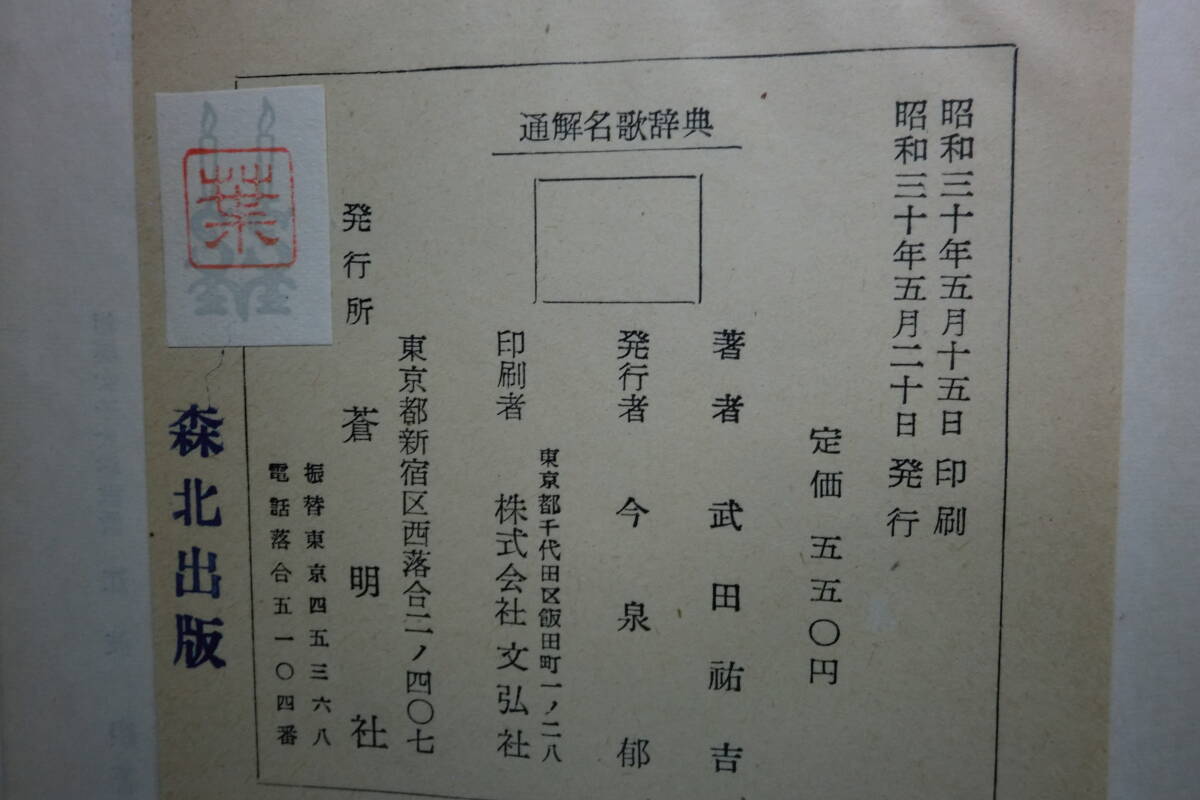 通解名歌辞典
昭和三十年五月十五日 印刷
昭和三十年五月二十日 発行
定価 五五〇円
著者 武田祐吉
発行者 今泉郁
東京都千代田区飯田町一ノ二八
印刷者 株式会社文弘社
東京都新宿区西落合二ノ四〇七
発行所 蒼明社
振替東京四五三六八
電話落合五一〇四番
葉
森北出版